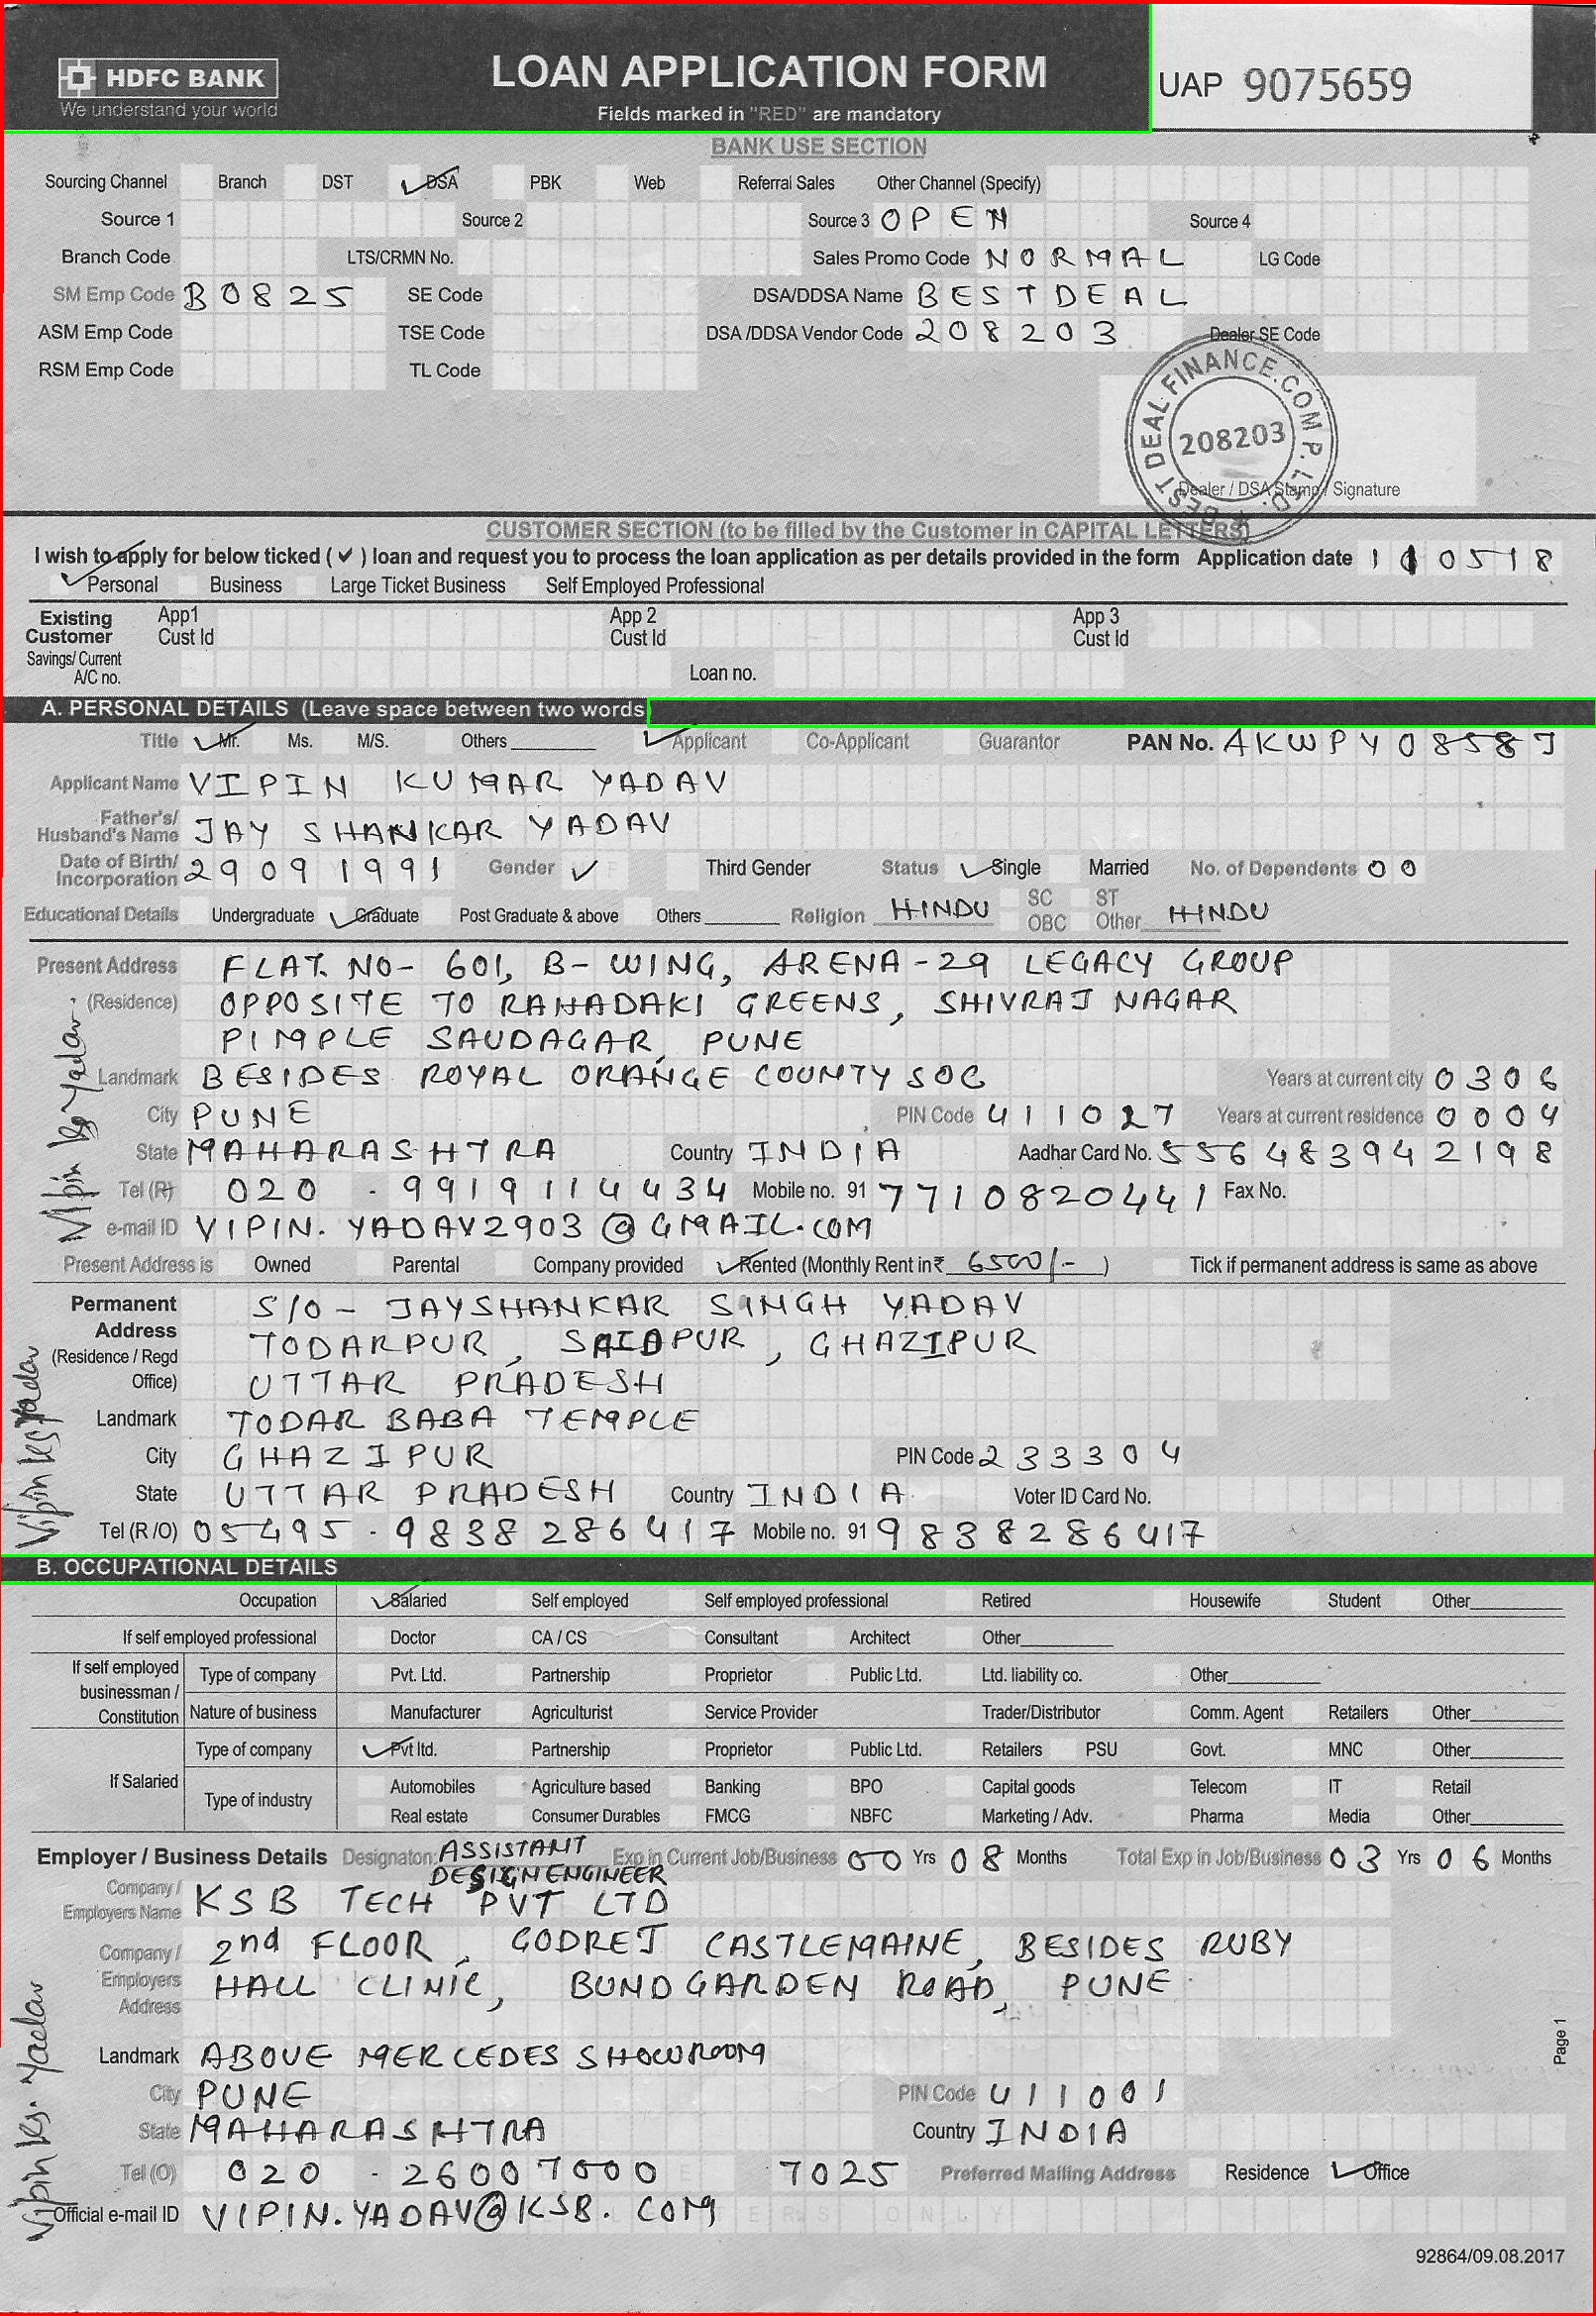 HDFC BANK
We understand your world
LOAN APPLICATION FORM
Fields marked in "RED" are mandatory
UAP 9075659
BANK USE SECTION
Sourcing Channel Branch DST DSA PBK Web Referral Sales Other Channel (Specify)
Source 1 Source 2 Source 3 OPEN Source 4
Branch Code LTS/CRMN No. Sales Promo Code NORMAL LG Code
SM Emp Code B0825 SE Code DSA/DDSA Name BEST DEAL
ASM Emp Code TSE Code DSA /DDSA Vendor Code 208203 Dealer SE Code
RSM Emp Code TL Code
BEST DEAL FINANCE.COM P. LTD.
208203
Dealer / DSA Stamp / Signature
CUSTOMER SECTION (to be filled by the Customer in CAPITAL LETTERS)
I wish to apply for below ticked ( ✓ ) loan and request you to process the loan application as per details provided in the form Application date 110518
Personal Business Large Ticket Business Self Employed Professional
Existing Customer App1 Cust Id App 2 Cust Id App 3 Cust Id
Savings/ Current A/C no. Loan no.
A. PERSONAL DETAILS (Leave space between two words
Title Mr. Ms. M/S. Others Applicant Co-Applicant Guarantor PAN No. AKWPY0858J
Applicant Name VIPIN KUMAR YADAV
Father's/ Husband's Name JAY SHANKAR YADAV
Date of Birth/ Incorporation 29091991 Gender Third Gender Status Single Married No. of Dependents 00
Educational Details Undergraduate Graduate Post Graduate & above Others Religion HINDU SC ST OBC Other HINDU
Present Address FLAT. NO- 601, B- WING, ARENA-29 LEGACY GROUP
(Residence) OPPOSITE TO RAHADAKI GREENS, SHIVRAJ NAGAR
PIMPLE SAUDAGAR, PUNE
Landmark BESIDES ROYAL ORANGE COUNTY SOC Years at current city 0306
City PUNE PIN Code 411027 Years at current residence 0004
State MAHARASHTRA Country INDIA Aadhar Card No. 556483942198
Tel (R) 020 - 9919114434 Mobile no. 91 7710820441 Fax No.
e-mail ID VIPIN.YADAV2903@GMAIL.COM
Present Address is Owned Parental Company provided Rented (Monthly Rent in ₹ 6500/- ) Tick if permanent address is same as above
Vipin Kr Yadav
Permanent Address S/O - JAYSHANKAR SINGH YADAV
(Residence / Regd Office) TODARPUR, SAIDPUR, GHAZIPUR
UTTAR PRADESH
Landmark TODAR BABA TEMPLE
City GHAZIPUR PIN Code 233304
State UTTAR PRADESH Country INDIA Voter ID Card No.
Tel (R /O) 05495 - 9838286417 Mobile no. 91 9838286417
Vipin Kr Yadav
B. OCCUPATIONAL DETAILS
Occupation Salaried Self employed Self employed professional Retired Housewife Student Other
If self employed professional Doctor CA / CS Consultant Architect Other
If self employed businessman / Constitution Type of company Pvt. Ltd. Partnership Proprietor Public Ltd. Ltd. liability co. Other
Nature of business Manufacturer Agriculturist Service Provider Trader/Distributor Comm. Agent Retailers Other
If Salaried Type of company Pvt ltd. Partnership Proprietor Public Ltd. Retailers PSU Govt. MNC Other
Type of industry Automobiles Agriculture based Banking BPO Capital goods Telecom IT Retail
Real estate Consumer Durables FMCG NBFC Marketing / Adv. Pharma Media Other
Employer / Business Details Designaton: ASSISTANT DESIGN ENGINEER Exp in Current Job/Business 00 Yrs 08 Months Total Exp in Job/Business 03 Yrs 06 Months
Company / Employers Name KSB TECH PVT LTD
Company / Employers Address 2nd FLOOR, GODREJ CASTLEMAINE, BESIDES RUBY
HALL CLINIC, BUND GARDEN ROAD, PUNE
Landmark ABOVE MERCEDES SHOWROOM
City PUNE PIN Code 411001
State MAHARASHTRA Country INDIA
Tel (O) 020 - 26007000 7025 Preferred Mailing Address Residence Office
Official e-mail ID VIPIN.YADAV@KSB.COM
Vipin Kr. Yadav
Page 1
92864/09.08.2017